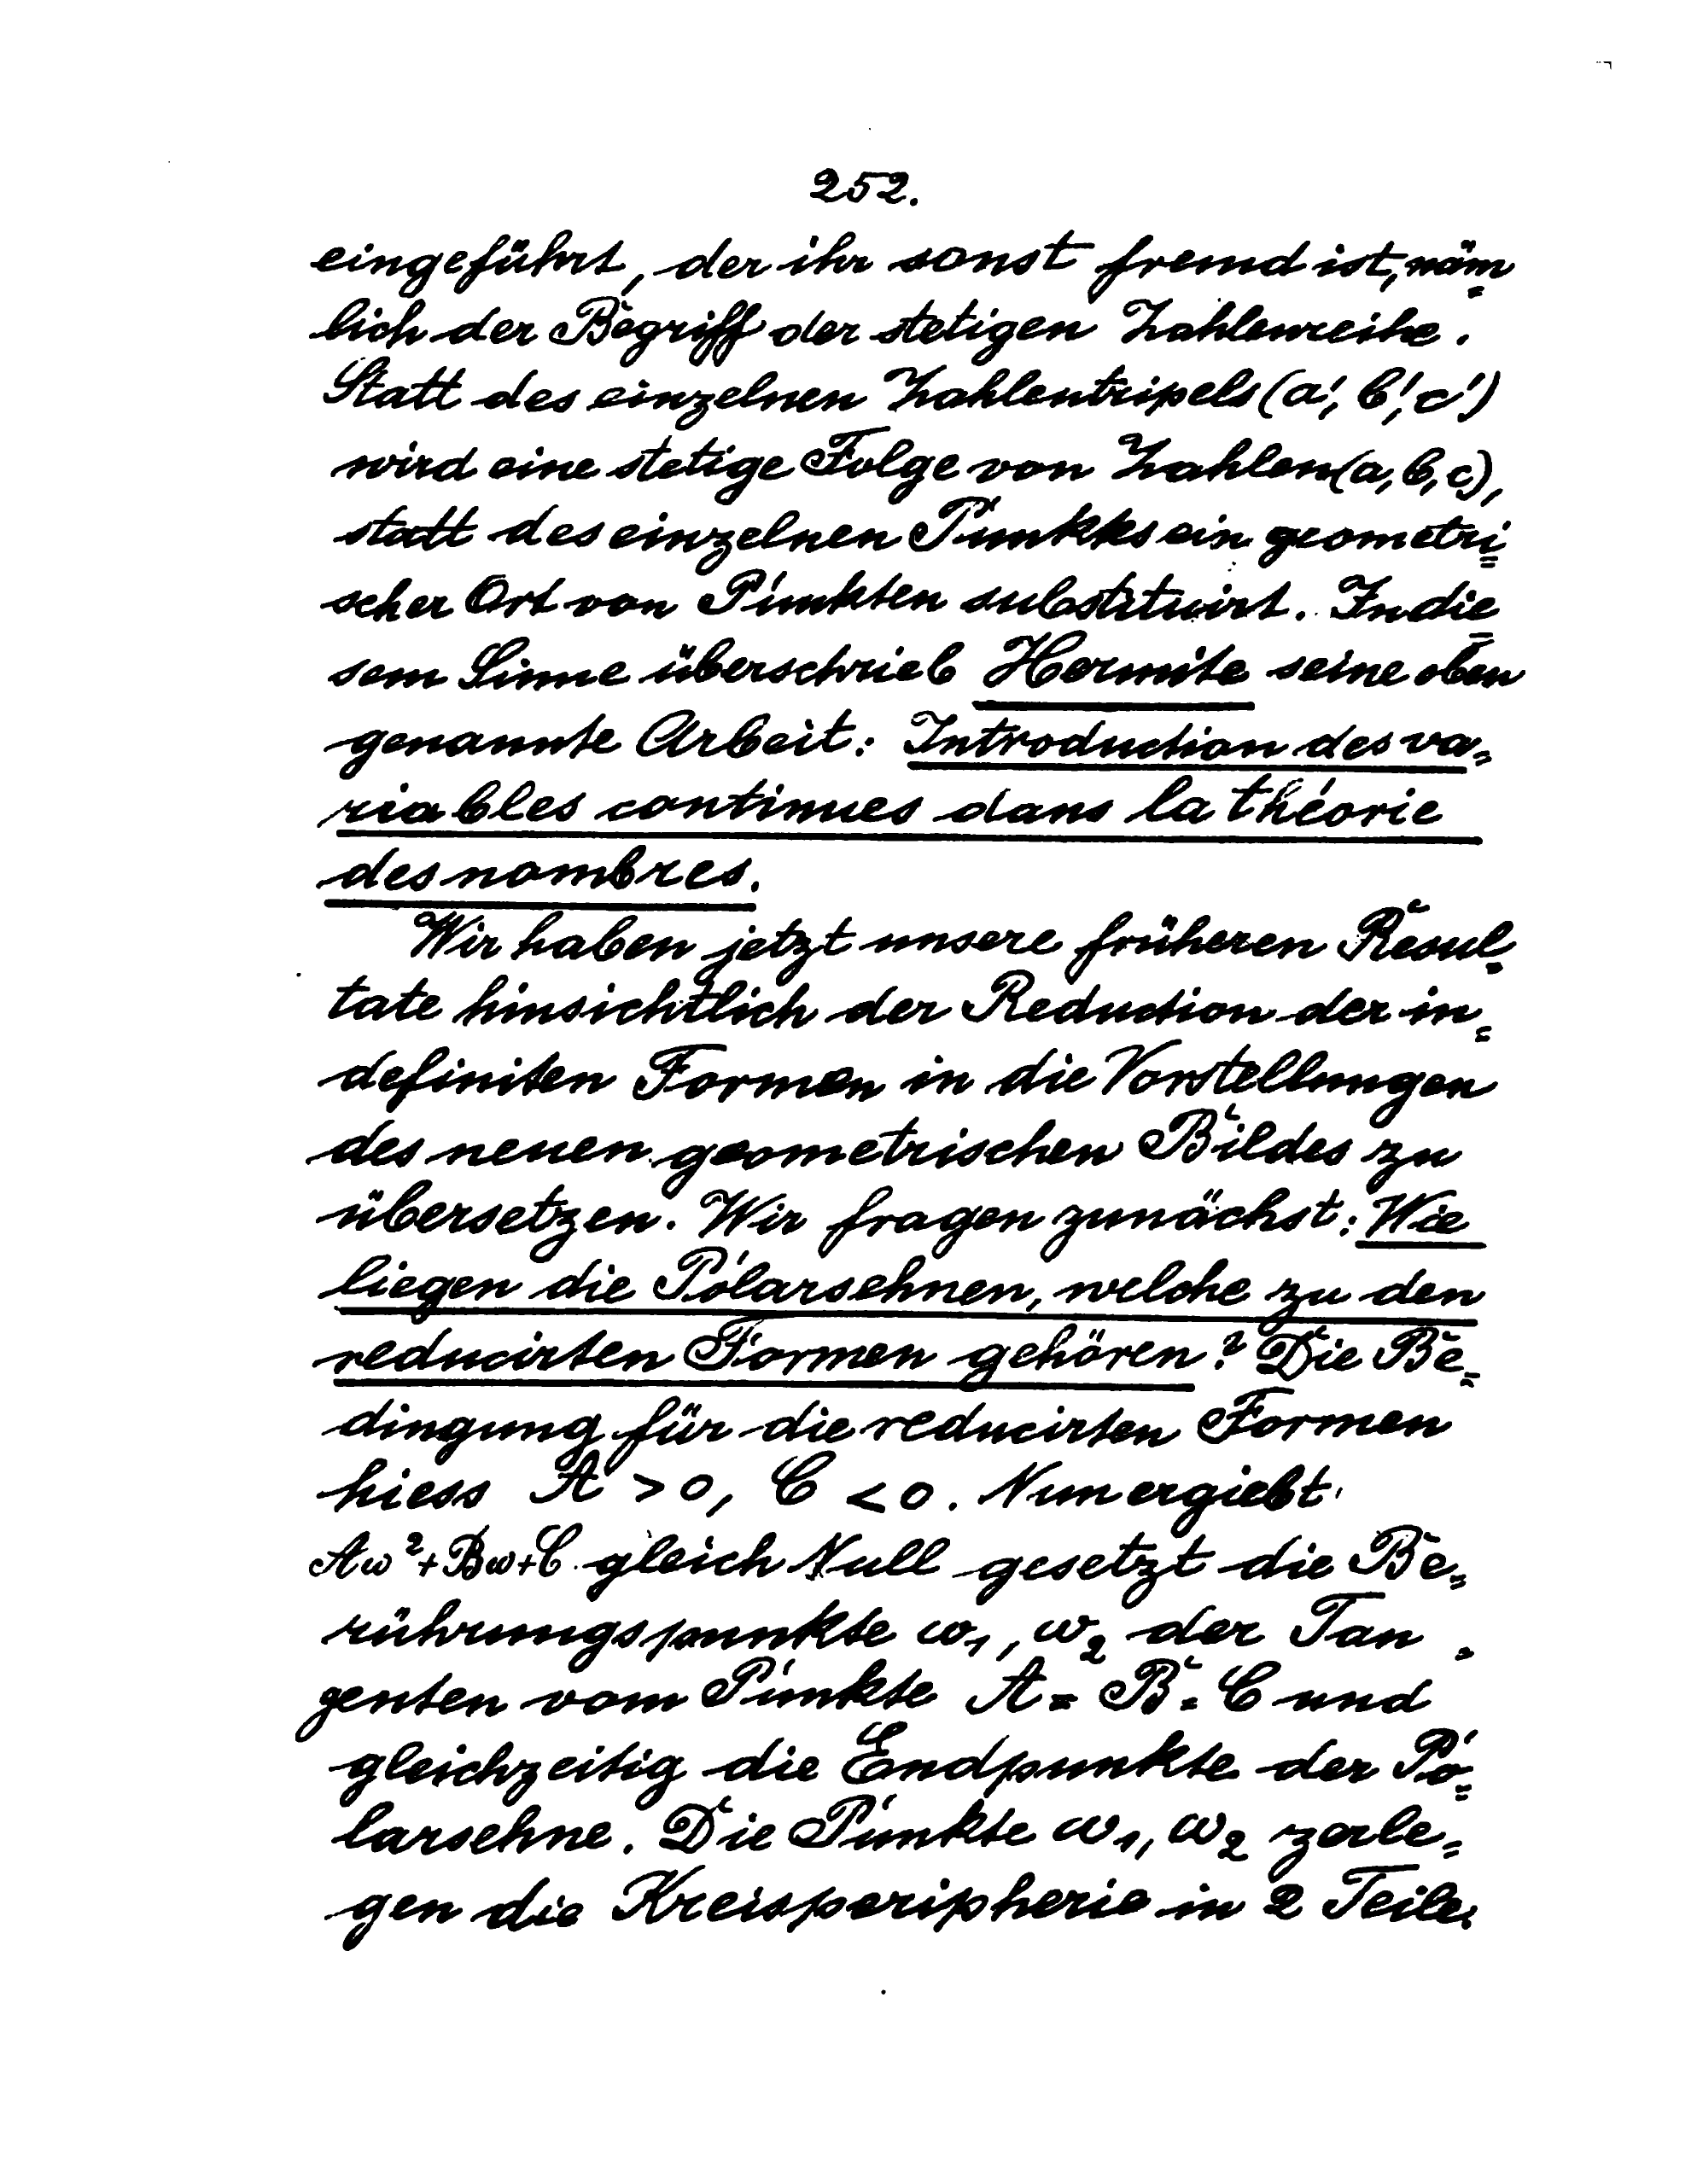 252.
eingeführt, der ihr sonst fremd ist, näm=
lich der Begriff der stetigen Zahlenreihe.
Statt des einzelnen Zahlentripels (a', b', c')
wird eine stetige Folge von Zahlen (a, b, c),
statt des einzelnen Punktes ein geometri=
scher Ort von Punkten substituirt. In die=
sem Sinne überschrieb Hermite seine oben
genannte Arbeit: Introduction des va=
riables continues dans la théorie
des nombres.
Wir haben jetzt unsere früheren Resul=
tate hinsichtlich der Reduction der in=
definiten Formen in die Vorstellungen
des neuen geometrischen Bildes zu
übersetzen. Wir fragen zunächst: Wie
liegen die Polarsehnen, welche zu den
reducirten Formen gehören? Die Be=
dingung für die reducirten Formen
hiess A > 0, C < 0. Nun ergiebt
Aω²+Bω+C gleich Null gesetzt die Be=
rührungspunkte ω₁, ω₂ der Tan=
genten vom Punkte A = B = C und
gleichzeitig die Endpunkte der Po=
larsehne. Die Punkte ω₁, ω₂ zerle=
gen die Kreisperipherie in 2 Teile.